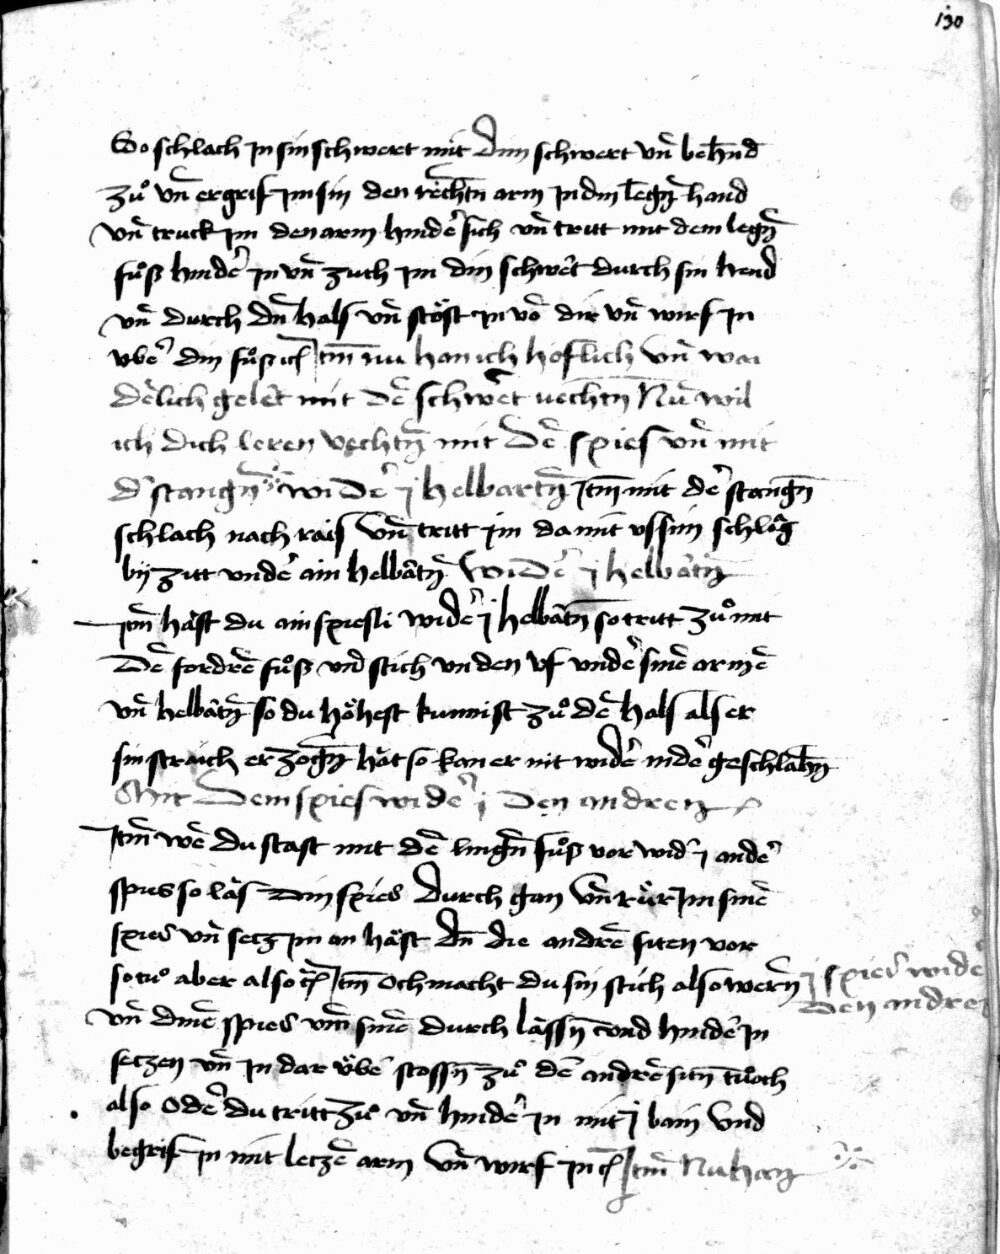 130
So schlach in sin schwert mit dim schwert vn̄ behend
zuͦ vn̄ ergrif im sin den rechtn̄ arm in din lengn̄ hand
vn̄ truck im den arm hinder sich vn̄ tritt mit dem lengn̄
fuͦß hinder in vn̄ zuch im din schwert durch sin hend
vn̄ durch dn̄ hals vn̄ stöst in vō dir vn̄ wirf in
vber din fuͦß Itm̄ nu han ich hoflich vn̄ wai
delich gelert mit dē schwert vechtn̄ Nū wil
ich dich leren vechtn̄ mit dē spies vn̄ mit
d' stangn̄ wider j helbartn̄ Itm̄ mit der stangn̄
schlach nach rais vn̄ tritt im da mit vs sim schlag
by zitt vnder ain helbartn̄ wider j helbartn̄
Itm̄ häst du ain spiesli wider j helbartn̄ so tritt zuͦ mit
dē fordrē fuͦß vnd stich vnden vf vnder sinē armē
vn̄ helbartn̄ so du höhest kunnist zuͦ dē hals als er
sin straich erzogn̄ hät so kan er nit wider nider geschlahn̄
Mit dem spies wider j den andren
Itm̄ wē du stast mit dē lingn̄ fuͦß vor wid' j ander
spies so läs din spies durch gan vn̄ rür im sinē
spies vn̄ secz im an häst dn̄ die andrē siten vor
so tuͦ aber also Itm̄ Och macht du sin stich also wern̄
j spies wider
den andren
vn̄ dinē spies vm̄ sinē durch lässn̄ vnd hinder in
seczen vn̄ in dar über stossn̄ zuͦ dē andrē sitn̄ tuͦ och
also Oder du tritt zuͦ vn̄ hinder in mit j bain vnd
begrif in mit leczē arm vn̄ wirf in Itm̄ Nu han